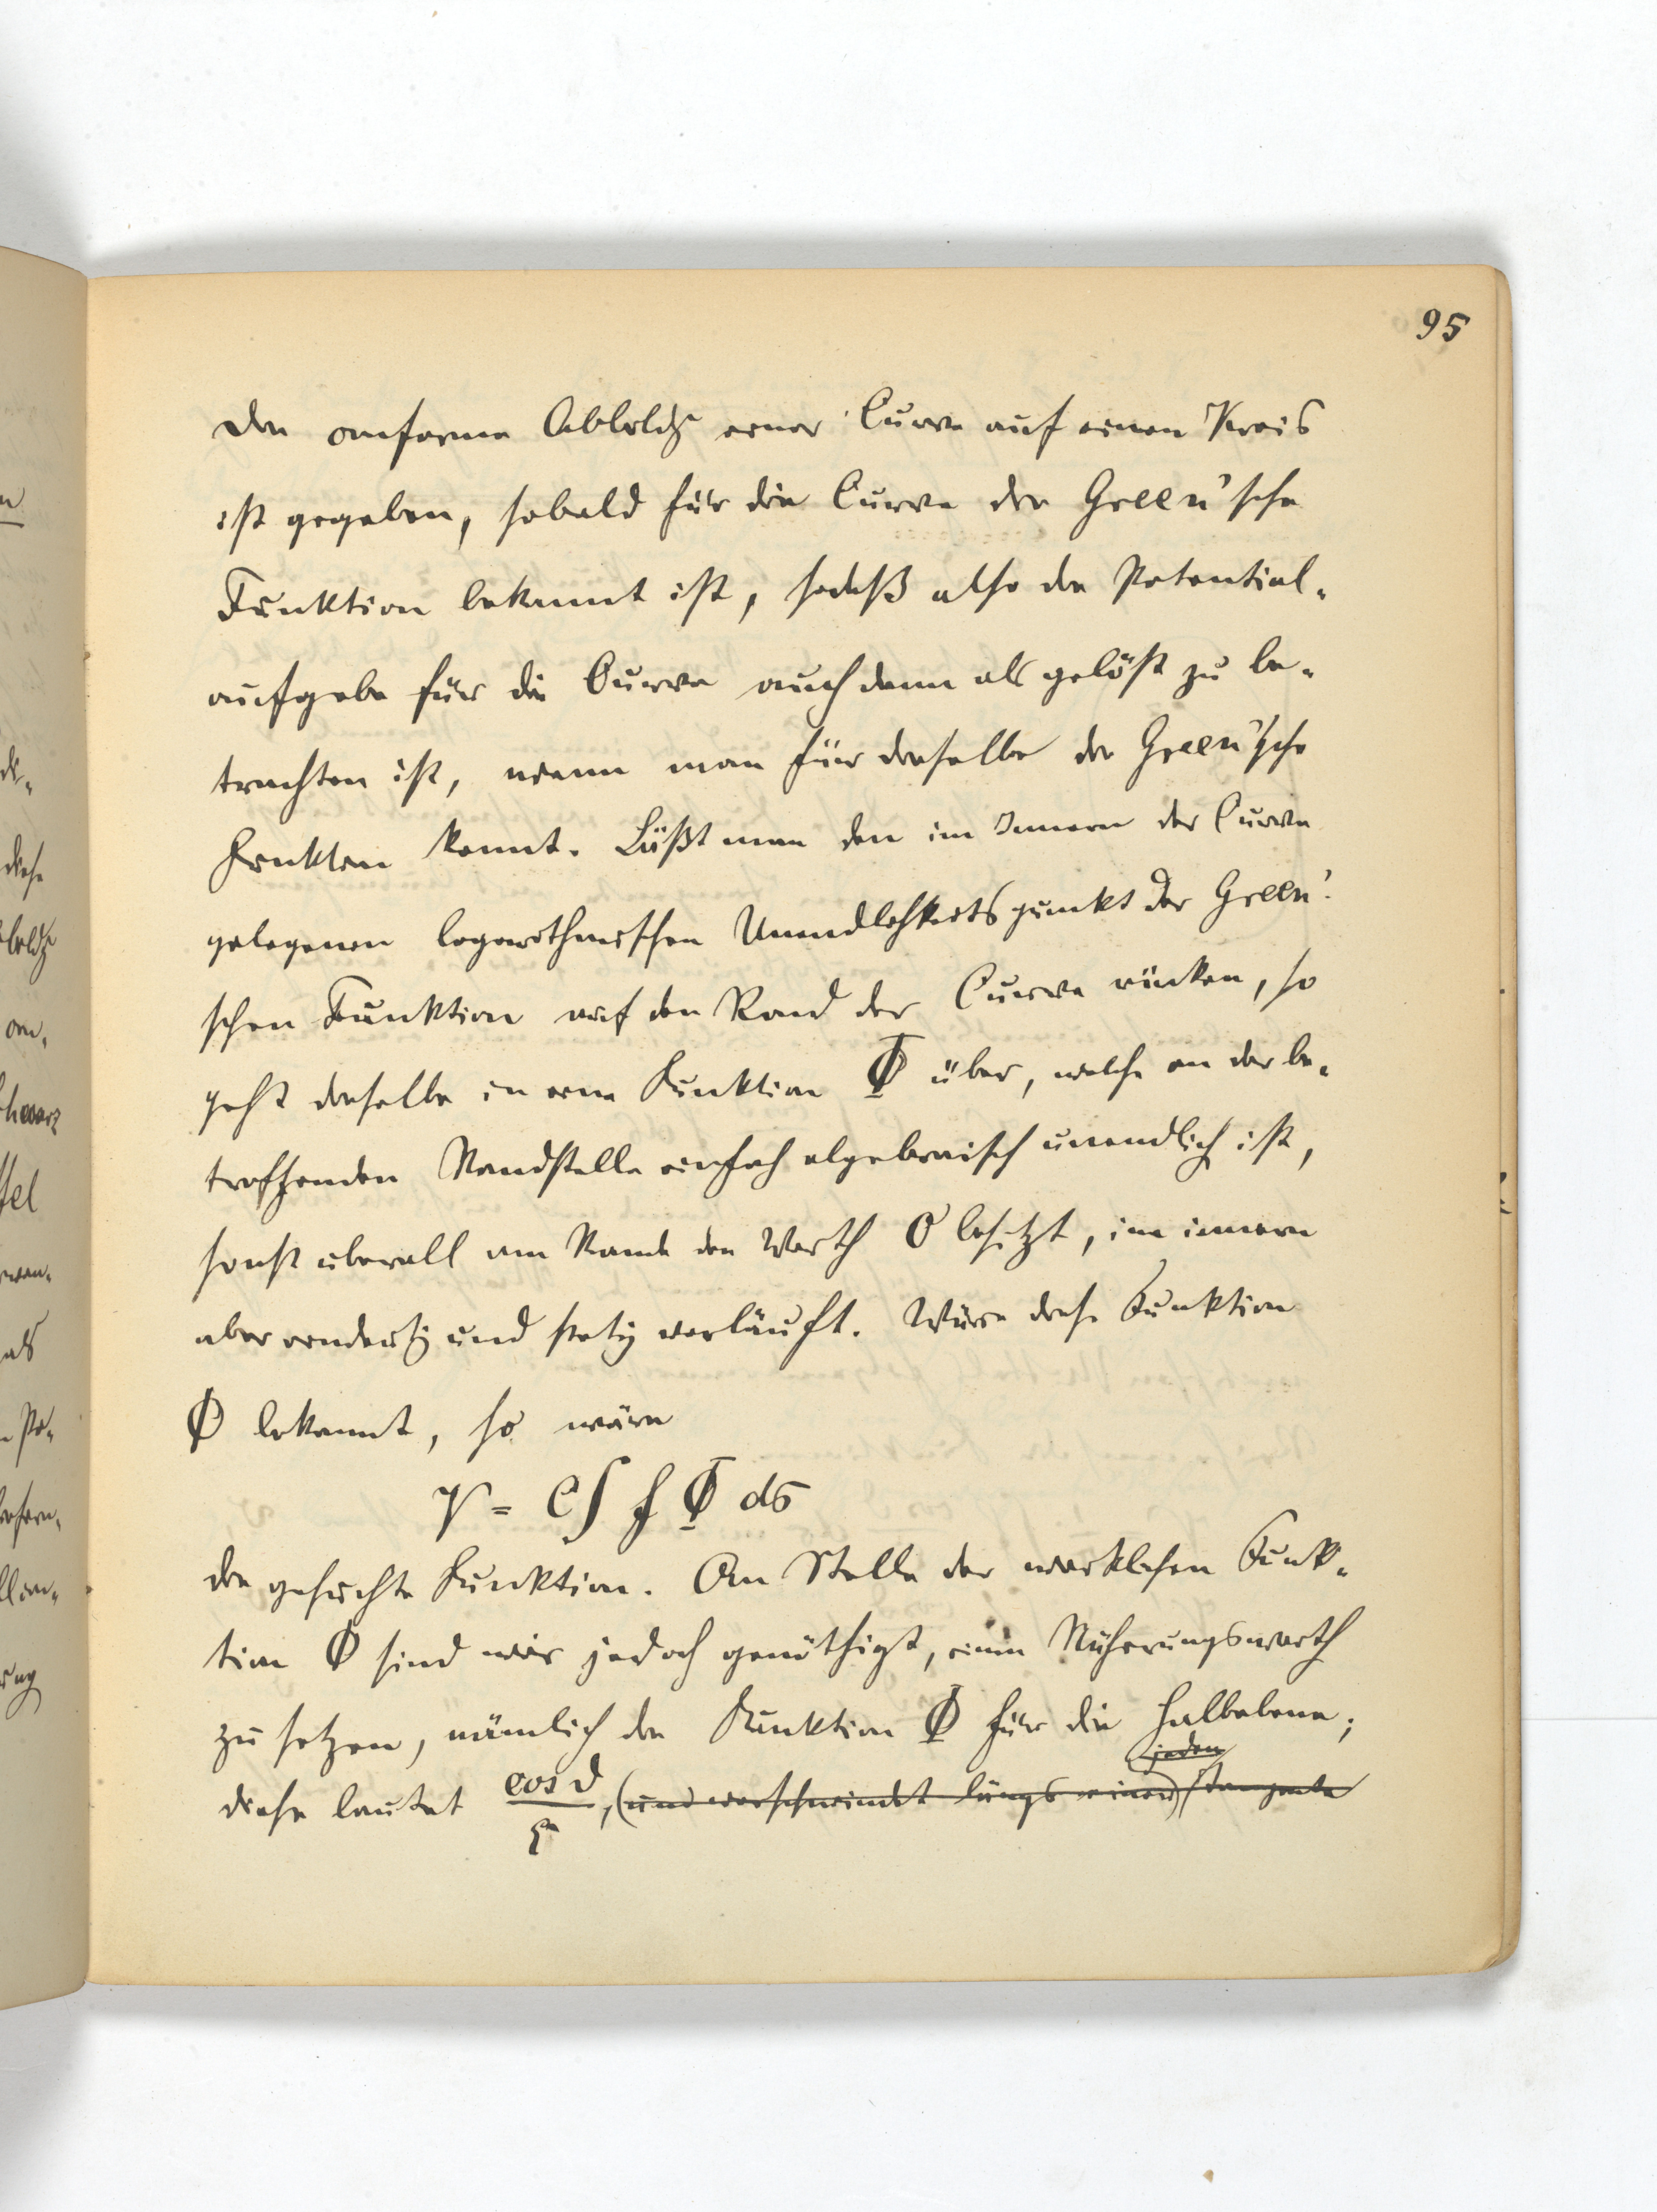 95
Die conforme Abbildg einer Curve auf einen Kreis
ist gegeben, sobald für die Curve die Green'sche
Funktion bekannt ist, sodaß also die Potential-
aufgabe für die Curve auch dann als gelöst zu be-
trachten ist, wenn man für dieselbe die Green'sche
Funktion kennt. Läßt man den im Innern der Curve
gelegenen logarithmischen Unendlichkeitspunkt der Green'
schen Funktion auf den Rand der Curve rücken, so
geht dieselbe in eine Funktion Φ über, welche an der be-
treffenden Randstelle einfach algebraisch unendlich ist,
sonst überall am Rande den Werth 0 besitzt, im innern
aber eindeutig und stetig verläuft. Wäre diese Funktion
Φ bekannt, so wäre
V = C∫ f Φ ds
die gesuchte Funktion. An Stelle der wirklichen Funk-
tion Φ sind wir jedoch genöthigt, einen Näherungswerth
zu setzen, nämlich die Funktion Φ für die Halbebene;
jeden
diese lautet cos ϑ / r, (und verschwindet längs einer) Tangente